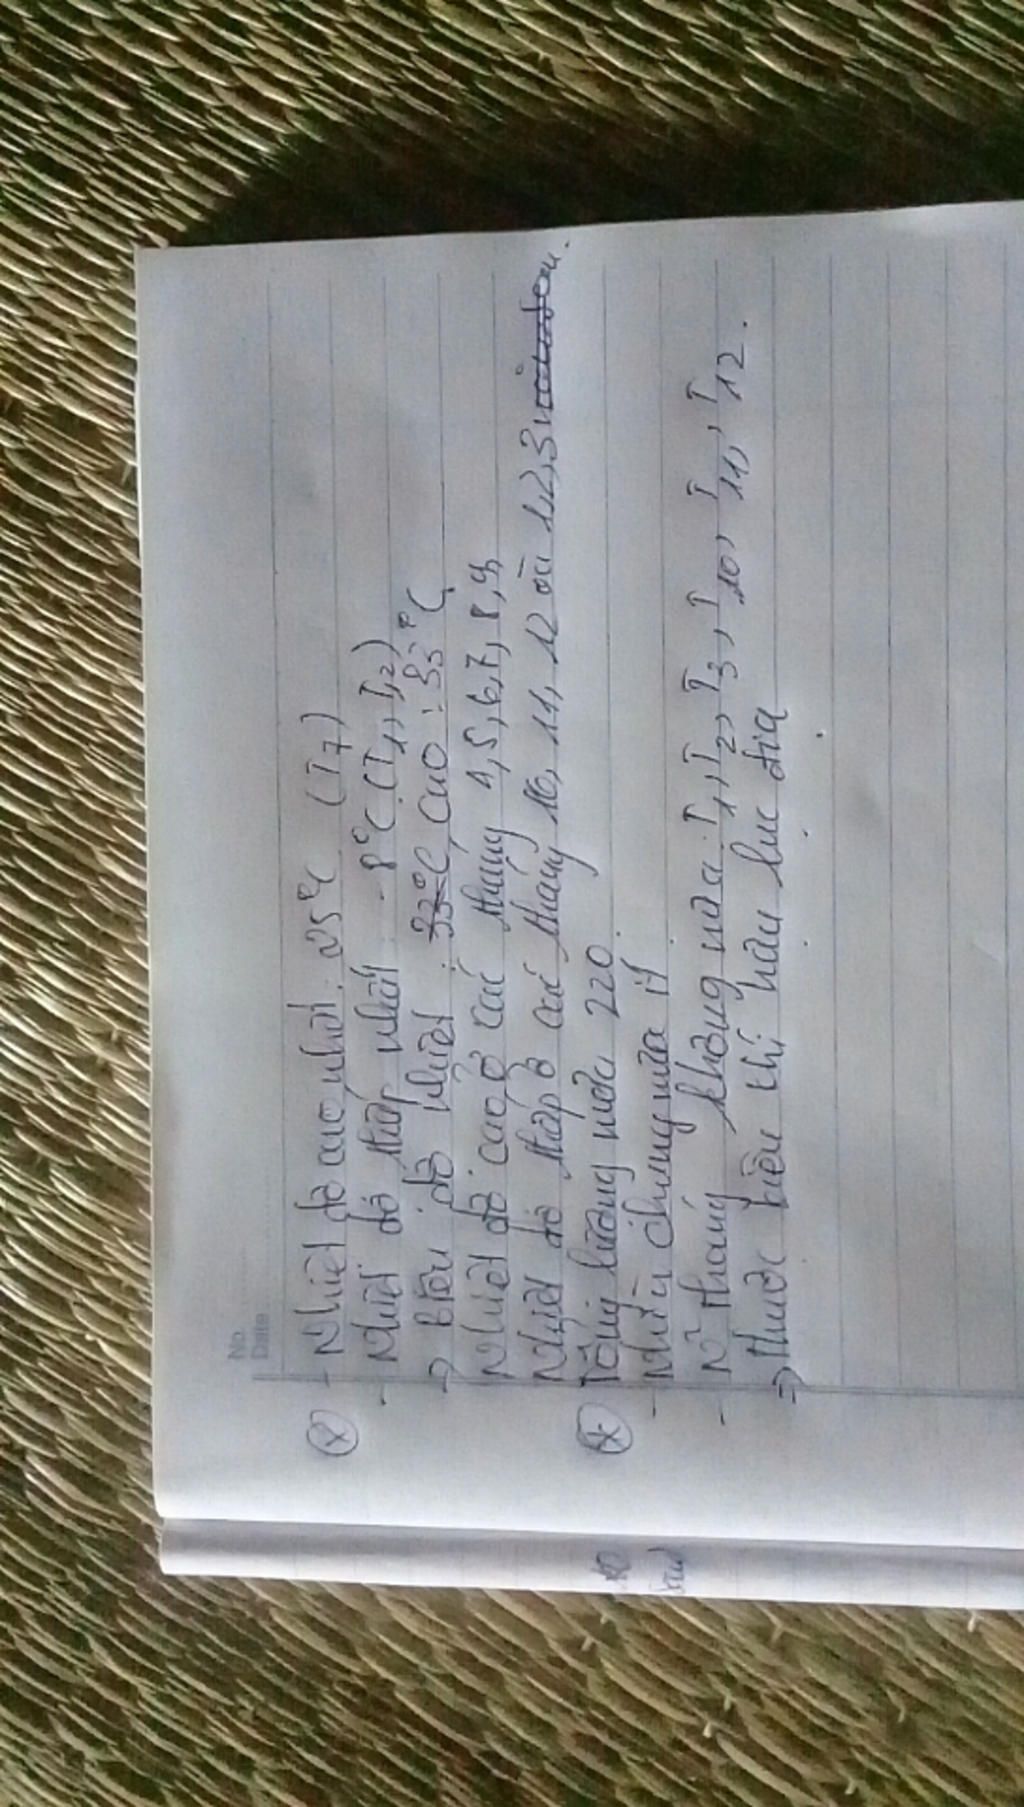 No
Date
(x) - Nhiệt độ cao nhất: 25°C (T7)
- Nhiệt độ thấp nhất: -8°C (T1, T12)
=> Biên độ nhiệt: 33°C Cao: 33°C
Nhiệt độ cao ở các tháng 4,5,6,7,8,9
Nhiệt độ thấp ở các tháng 10, 11, 12 và 1,2,3
(x) Tổng lượng mưa 220
- Nhìn chung mưa ít
- N² tháng không mưa: T1, T2, T3, T10, T11, T12.
=> thuộc kiểu khí hậu lục địa